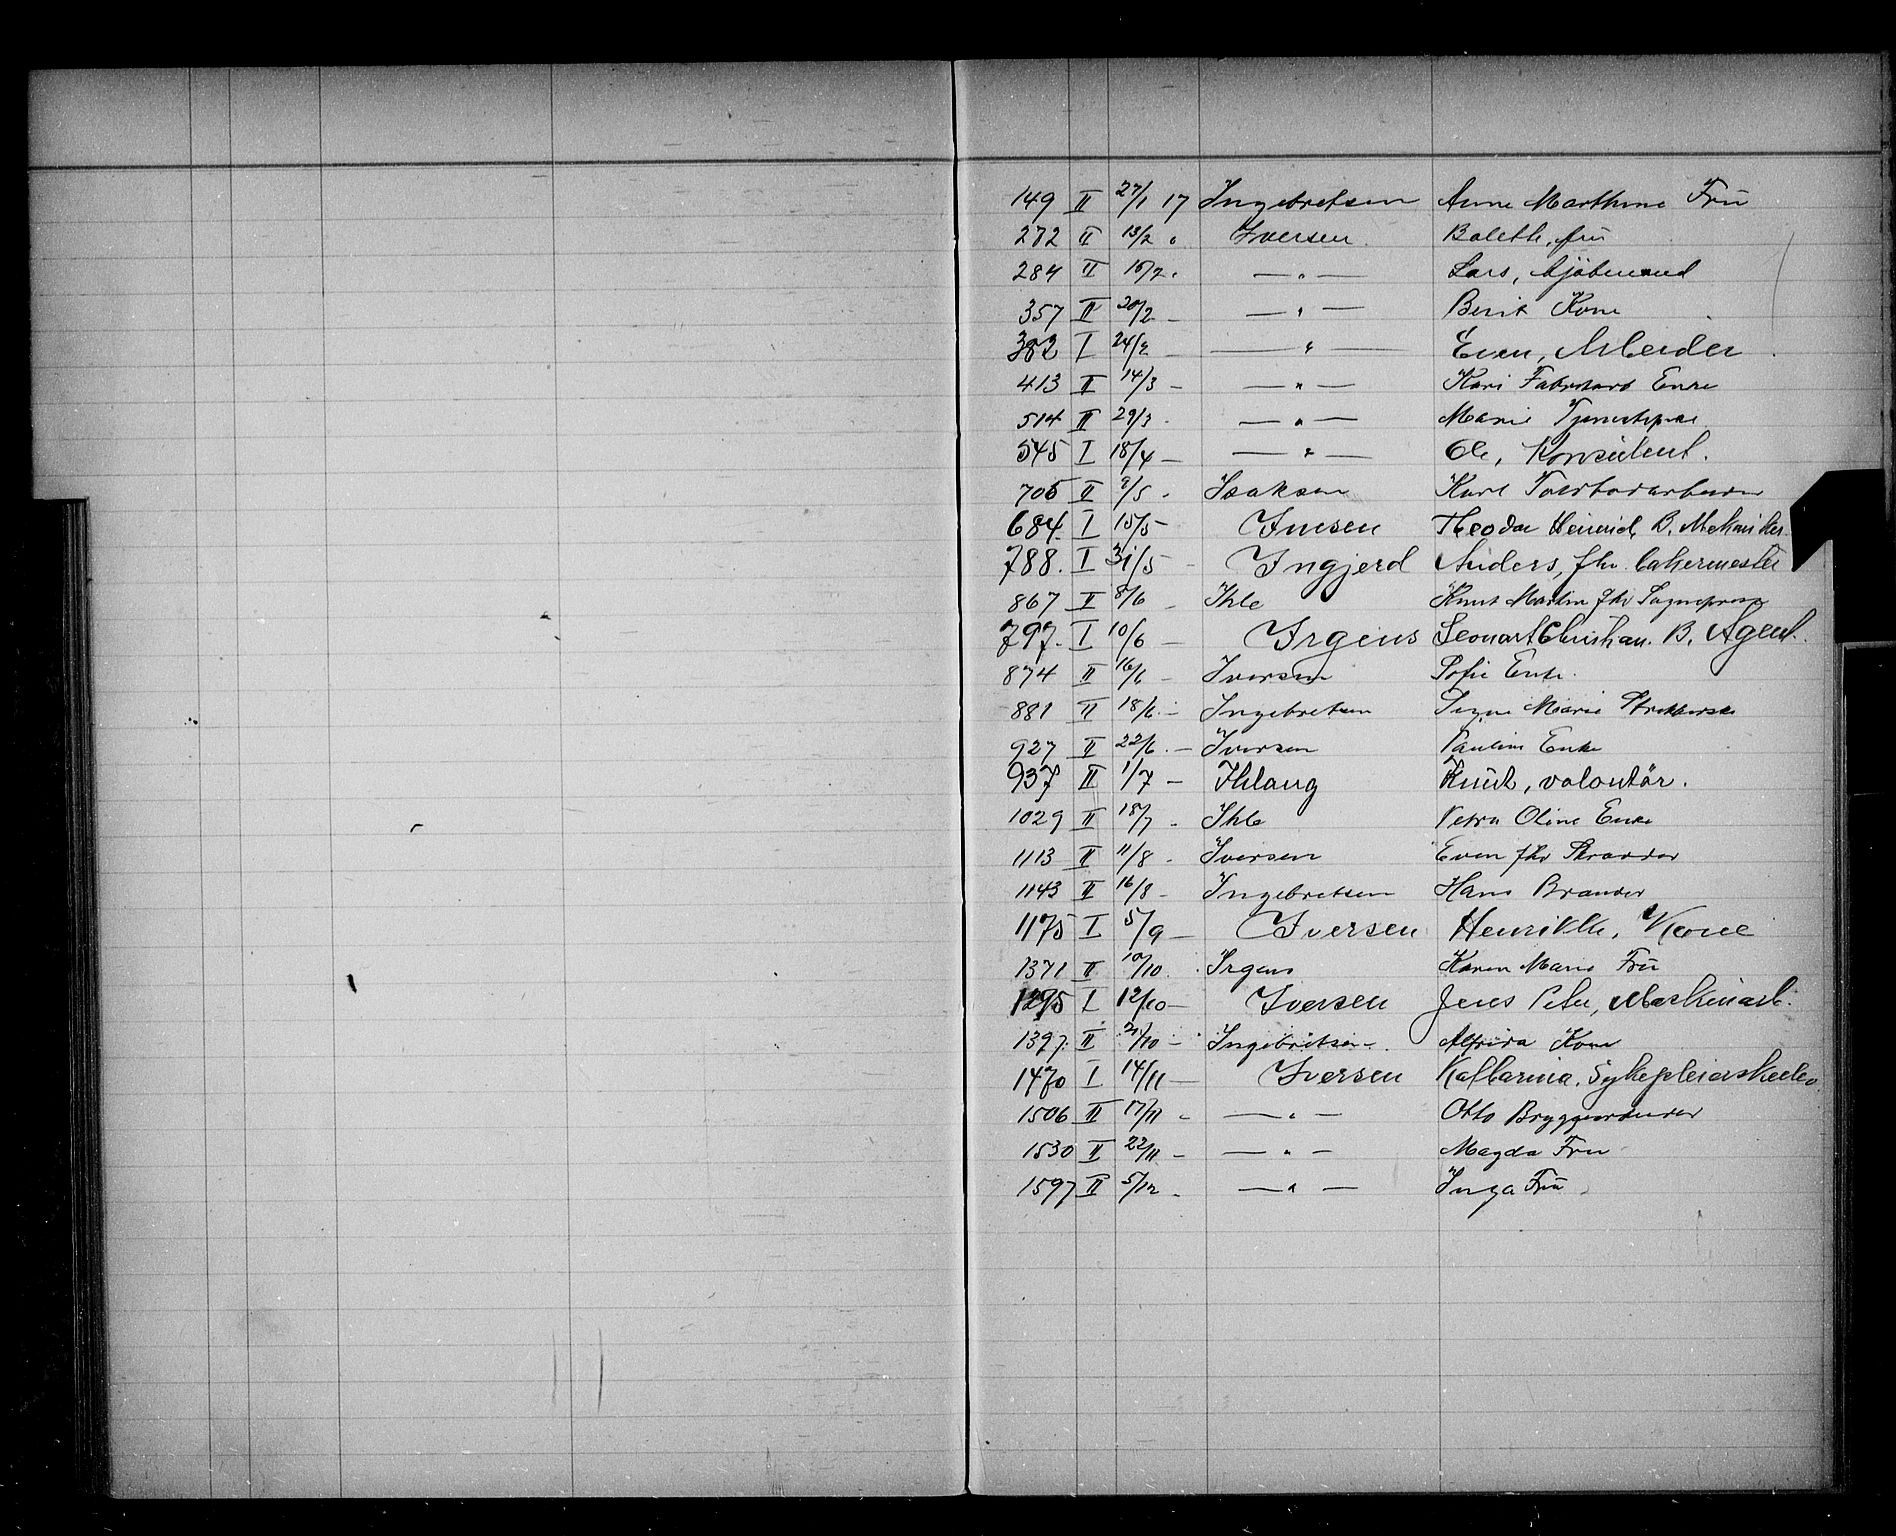 149 II 27/1 17 Ingebretsen Anne Marthine Frü
272 II 13/2 " Iversen Boleth, frü
284 II 15/2 " —"— Lars, Kjöbmand
357 II 20/2 — —"— Berit Kone
382 I 24/2 — —"— Even, Arbeider
413 II 14/3 — —"— Kari Enke
514 II 29/3 - —"— Marie
545 I 18/4 — —"— Ole, Konsulent.
705 II 9/5 - Isaksen Karl
684. I 15/5 — Imsen Theodor Heinrich B. Mekaniker
788. I 31/5 - Ingjerd Anders, fhv.
867 II 8/6 - Ihle Knut Martin fhv
797. I 10/6 — Irgens Leonart Christian. B. Agent.
874 II 16/6 - Iversen Sofie Enke.
881 II 18/6. — Ingebretsen Signe Marie
927 II 22/6. — Iversen Pauline Enke
937 II 1/7 — Ihlang Knut, volontär.
1029 II 18/7 - Ihle Petra Oline Enke
1113 II 11/8 - Iversen Even fhv Skrædder
1143 II 16/8 - Ingebretsen Hans
1175 I 5/9 — Iversen Henrikke, Kone
1371 II 10/10. Irgens Karen Marie Frü
1295 I 12/10 — Iversen Jens Peter, Maskinarb.
1397. II 21/10 — Ingebritsen Alfrida Kone
1470 I 14/11 — Iversen Katharina. Sykepleierskeelev
1506 II 17/11 - —"— Otto Bryggearbeider
1530 II 22/11 — —"— Magda Fru
1597 II 5/12 - —"— Inga Frü